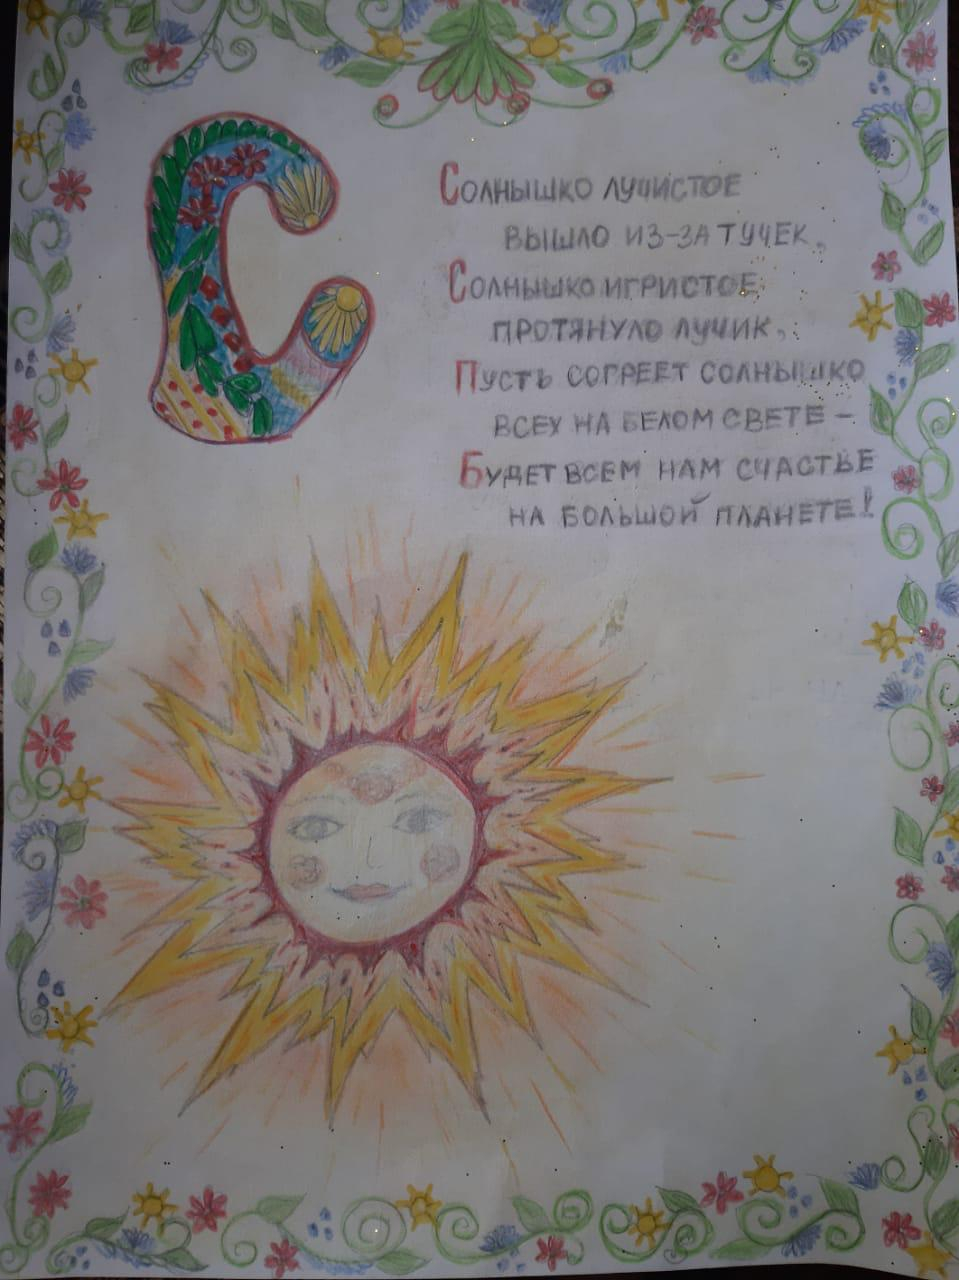 С
Солнышко лучистое
вышло из-за тучек,
Солнышко игристое
протянуло лучик,
Пусть согреет солнышко
всех на белом свете –
Будет всем нам счастье
на большой планете!